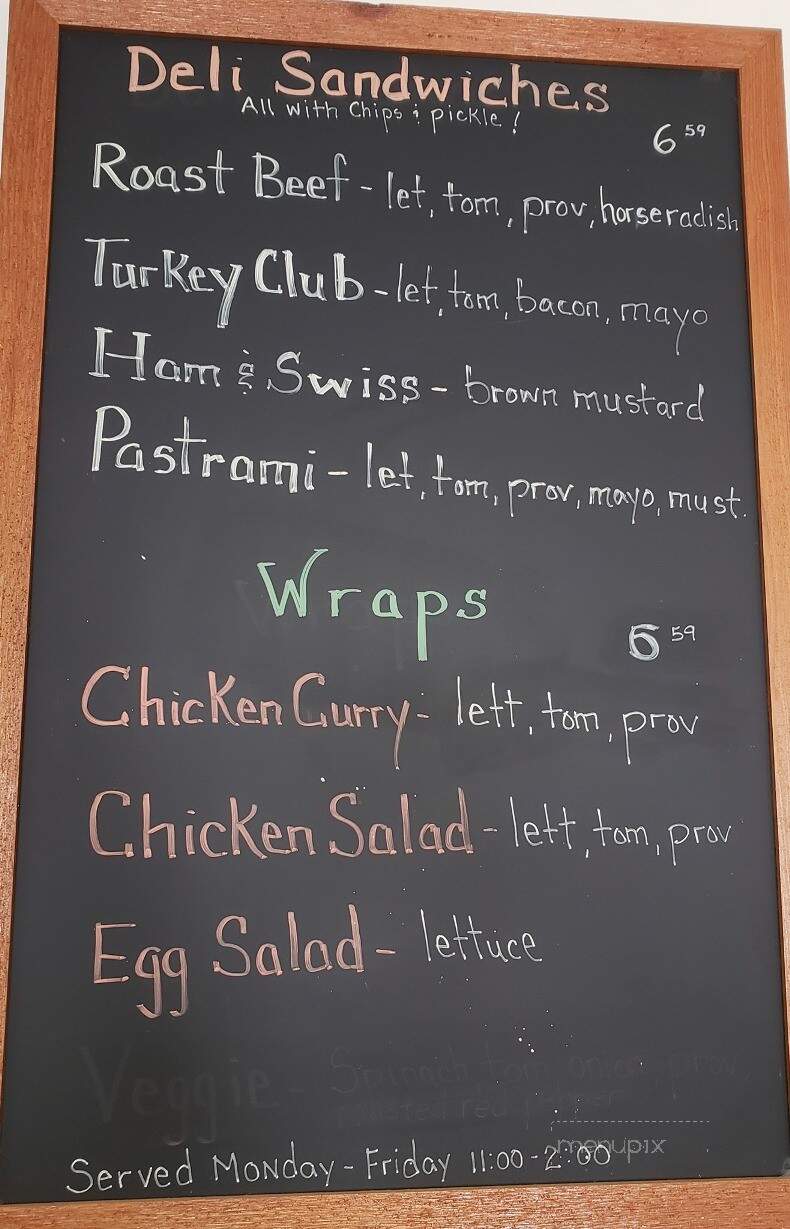 Deli Sandwiches
All with Chips & pickle!
6 59
Roast Beef - let, tom, prov, horseradish
Turkey Club - let, tom, bacon, mayo
Ham & Swiss - brown mustard
Pastrami - let, tom, prov, mayo, must.
Wraps
6 59
Chicken Curry - lett, tom, prov
Chicken Salad - lett, tom, prov
Egg Salad - lettuce
Veggie - Spinach, tom, onion, prov,
roasted red pepper
menupix
Served Monday - Friday 11:00 - 2:00